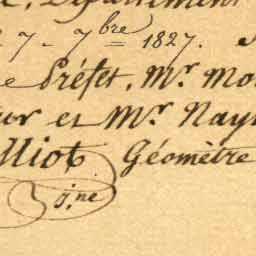 Département
7. 7bre 1827.
Préfet, Mr. Mo
ur et Mr Nay
lliot Géomètre
jne